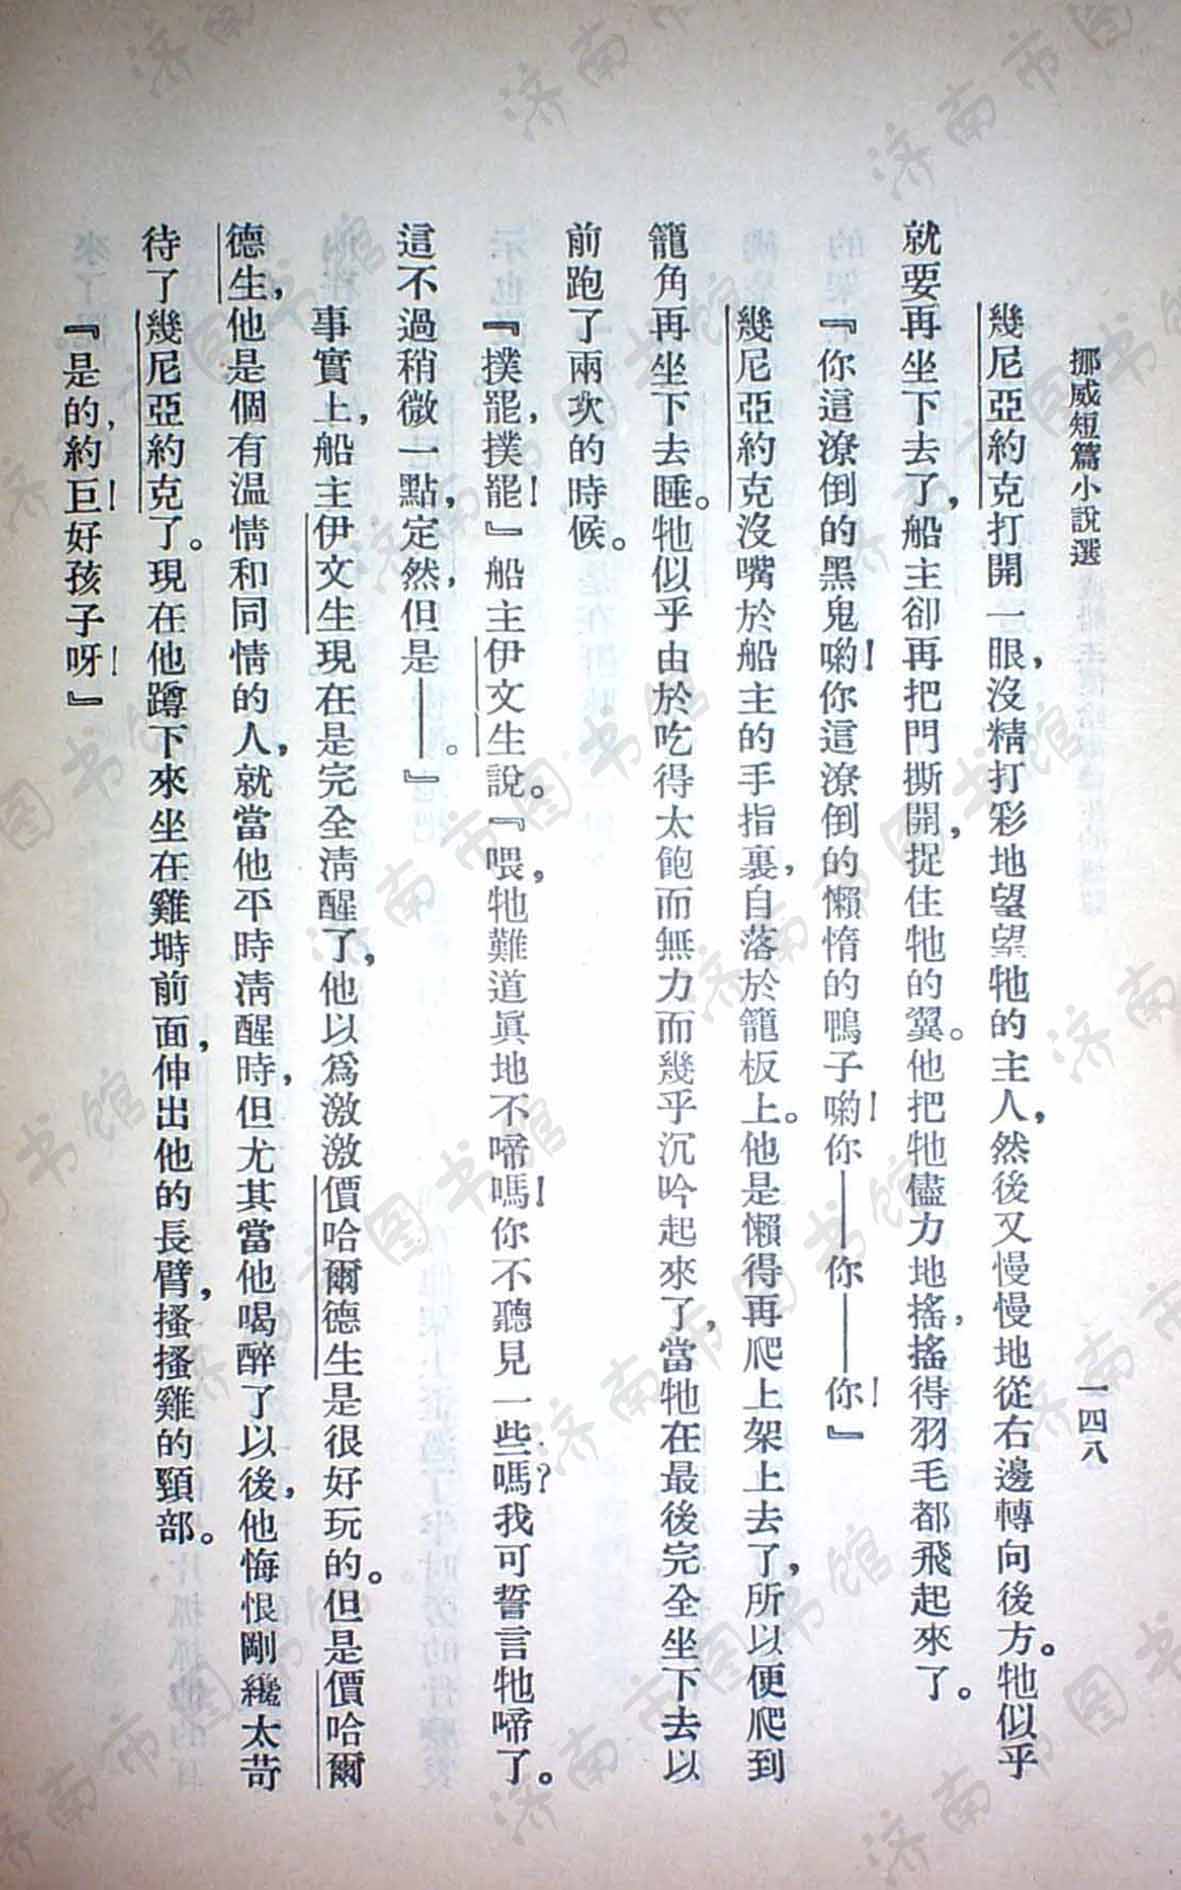 挪威短篇小說選
一四八
幾尼亞約克打開一眼，沒精打彩地望望牠的主人，然後又慢慢地從右邊轉向後方。牠似乎
就要再坐下去了，船主卻再把門撕開，捉住牠的翼。他把牠儘力地搖，搖得羽毛都飛起來了。
『你這潦倒的黑鬼喲！你這潦倒的懶惰的鴨子喲！你——你——你！』
幾尼亞約克沒嘴於船主的手指裏，自落於籠板上。他是懶得再爬上架上去了，所以便爬到
籠角再坐下去睡。牠似乎由於吃得太飽而無力而幾乎沉吟起來了，當牠在最後完全坐下去以
前跑了兩次的時候。
『撲罷，撲罷！』船主伊文生說。『喂，牠難道眞地不啼嗎！你不聽見一些嗎？我可誓言牠啼了。
這不過稍微一點，定然，但是——。』
事實上，船主伊文生現在是完全淸醒了，他以爲激激價哈爾德生是很好玩的。但是價哈爾
德生，他是個有溫情和同情的人，就當他平時淸醒時，但尤其當他喝醉了以後，他悔恨剛纔太苛
待了幾尼亞約克了。現在他蹲下來坐在雞塒前面，伸出他的長臂，搔搔雞的頸部。
『是的，約巨！好孩子呀！』